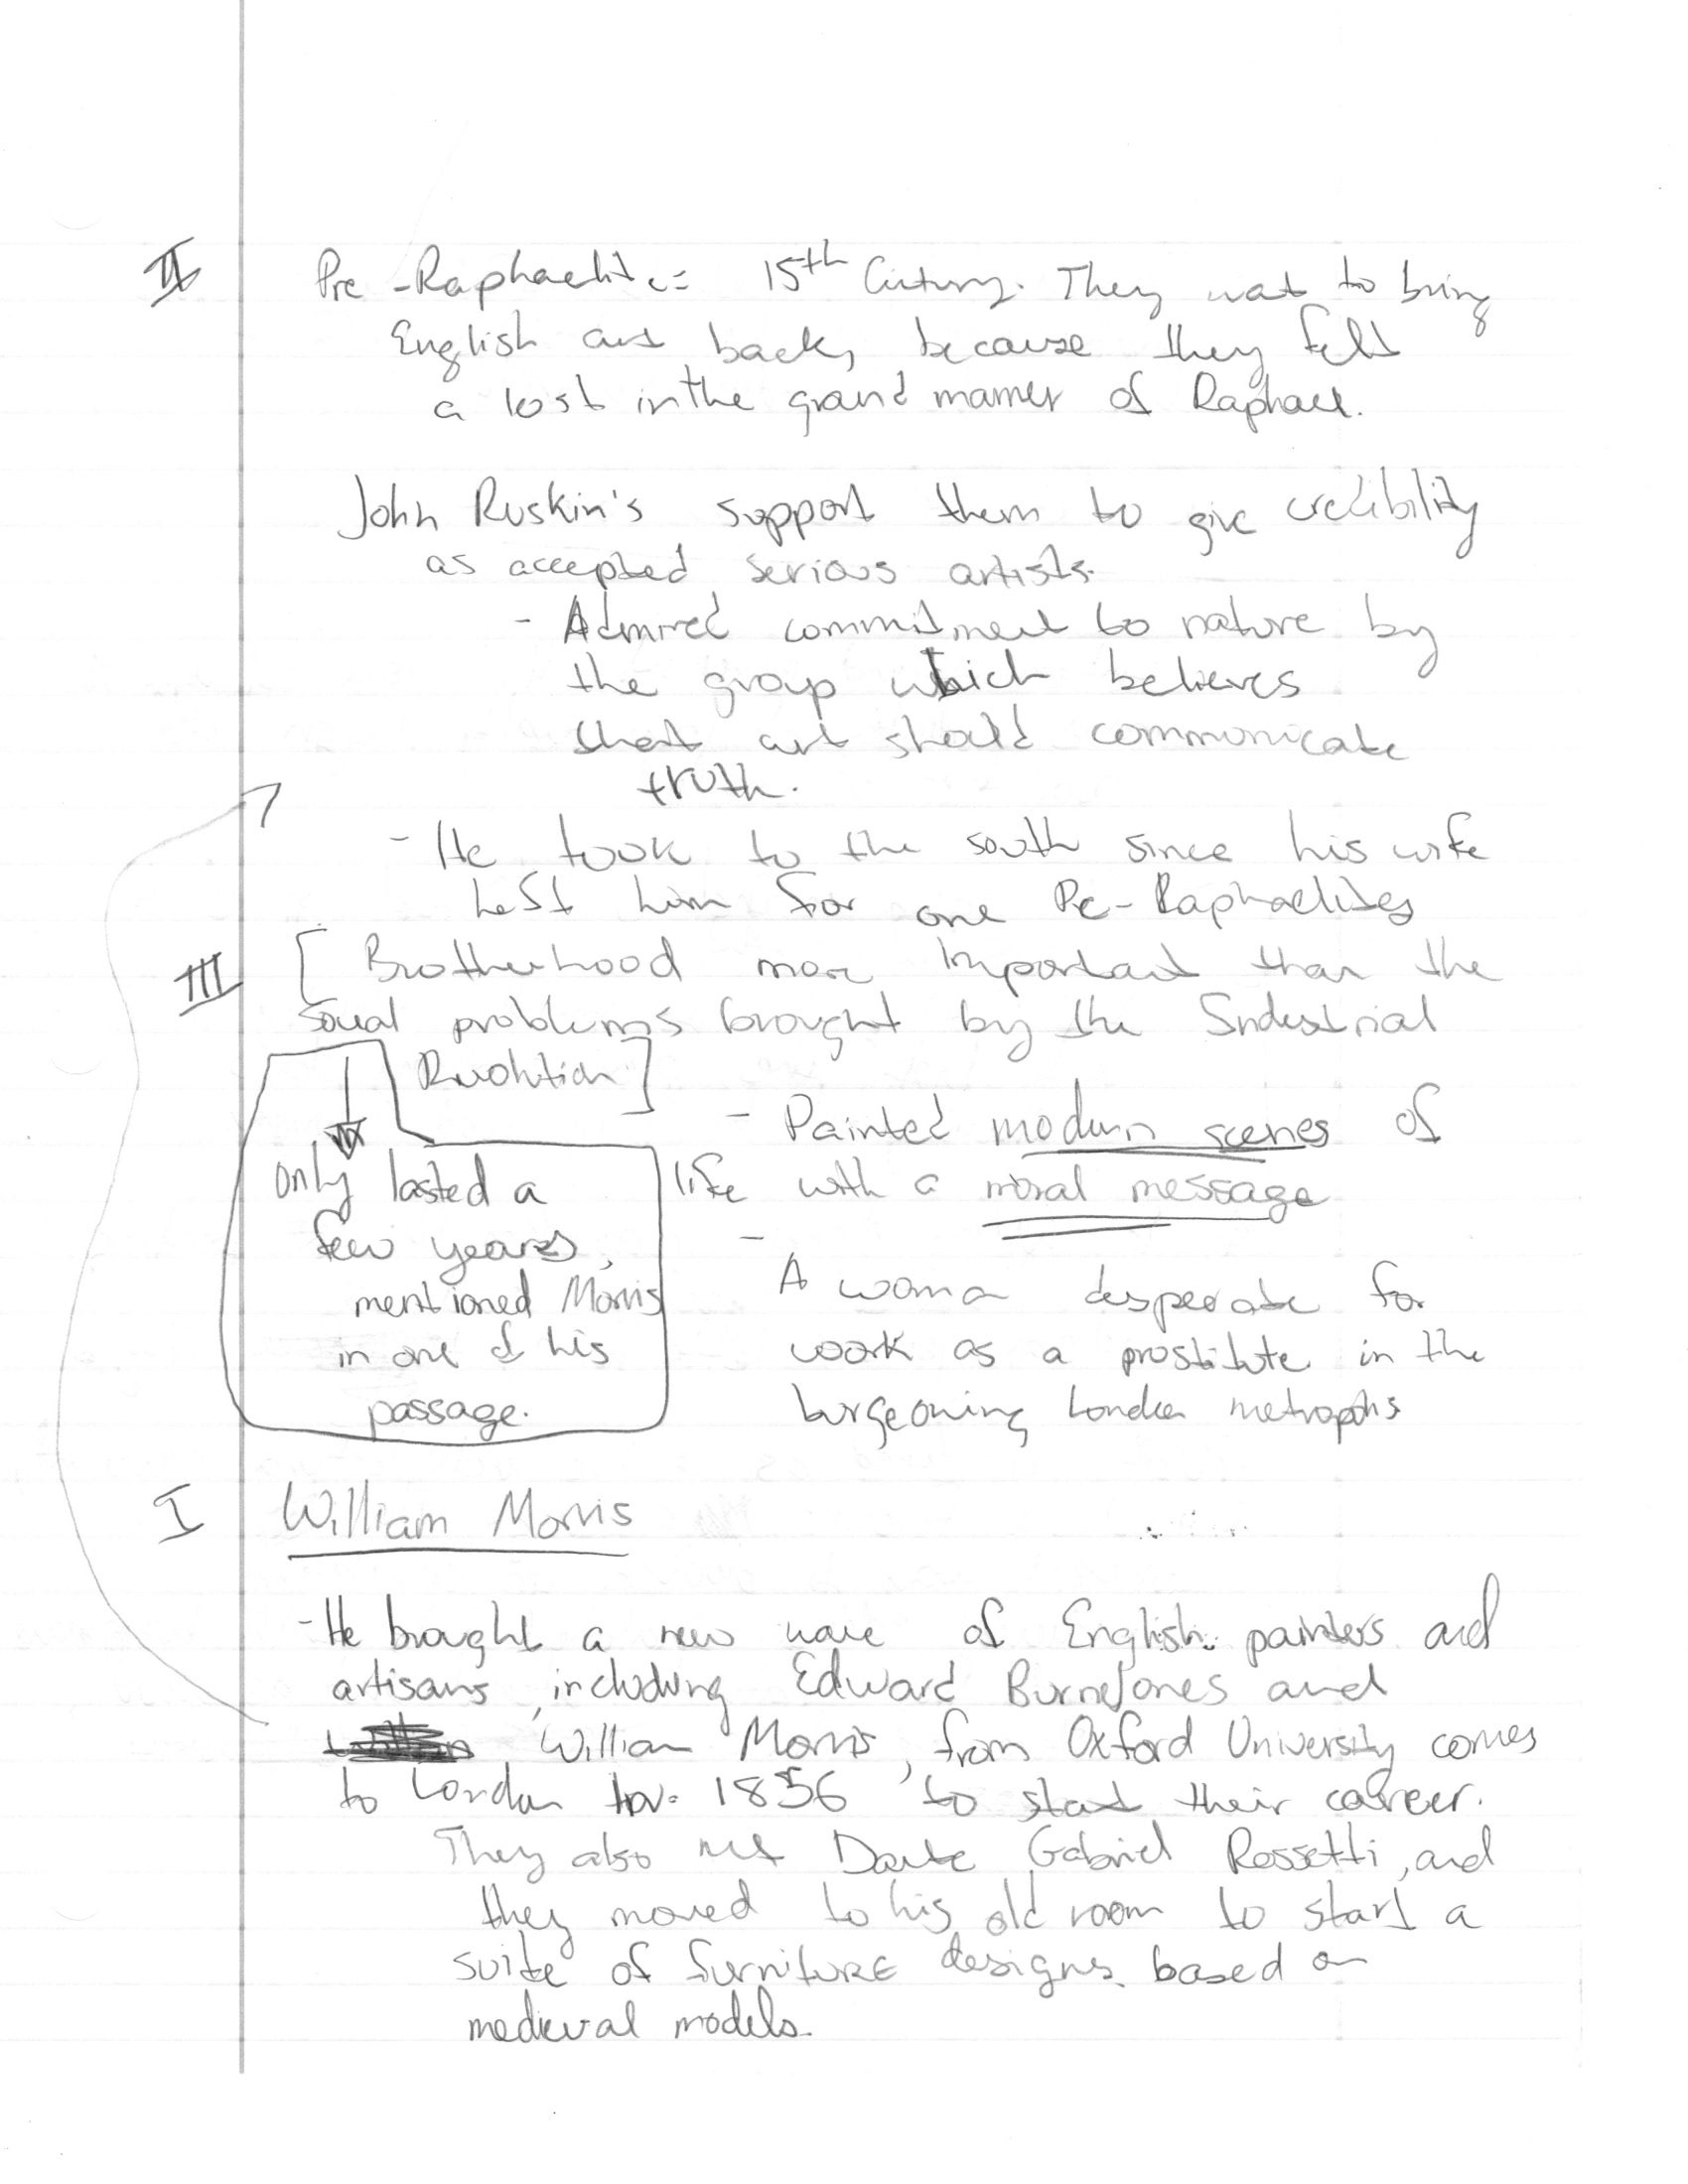 II Pre-Raphaelite = 15th Century. They want to bring
English art back, because they felt
a lost in the grand manner of Raphael.
John Ruskin's support them to give credibility
as accepted serious artists.
- Admired commitment to nature by
the group which believes
that art should communicate
truth.
- He took to the south since his wife
left him for one Pre-Raphaelites
III [Brotherhood more important than the
social problems brought by the Industrial
Revolution]
- Painted modern scenes of
life with a moral message
- A woman desperate for
work as a prostitute in the
burgeoning London metropolis
only lasted a
few years,
mentioned Morris
in one of his
passage.
I William Morris
- He brought a new wave of English painters and
artisans, including Edward BurneJones and
William Morris, from Oxford University comes
to London 1856 to start their career.
They also met Dante Gabriel Rossetti, and
they moved to his old room to start a
suite of furniture designs based on
medieval models.